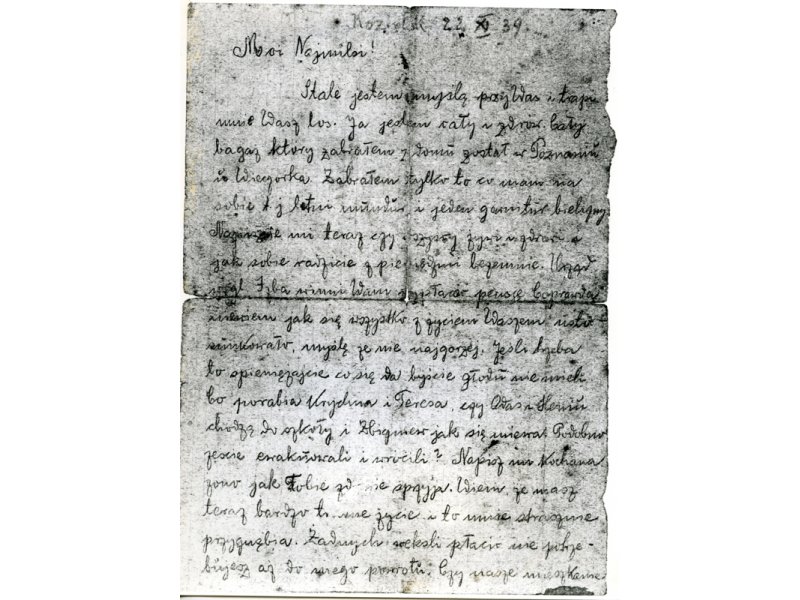 Kozielsk 22 XI 39.
Moi Najmilsi!
Stale jestem myślą przy Was i trapi
mnie Wasz los. Ja jestem cały i zdrow. Cały
bagaż ktory zabrałem z domu został w Poznaniu
u Węgorka. Zabrałem tylko to co mam na
sobie t j letni mundur i jeden garnitur bielizny
mi teraz czy wszyscy
jak sobie radzicie z pieniędzmi bezemnie. Urząd
Izba winna Wam wypłacać pensję Coprawda
niewiem jak się wszystko z życiem Waszem usto
sunkowało, myślę że nie najgorzej. Jeśli trzeba
to spieniężajcie co się da byście głodu nie mieli
bo porabia Krydna i Teresa, czy Oleś i Heniu
chodzą do szkoły i Zbigniew jak się miewa? Podobno
żeście ewakuowali i wrócili? Napisz mi Kochana
żono jak Tobie nie sprzyja. Wiem, że masz
teraz bardzo życie i to mnie strasznie
przygnębia. Żadnych weksli płacić nie potrze-
bujesz aż do mego powrotu. Czy nasze mieszkanie